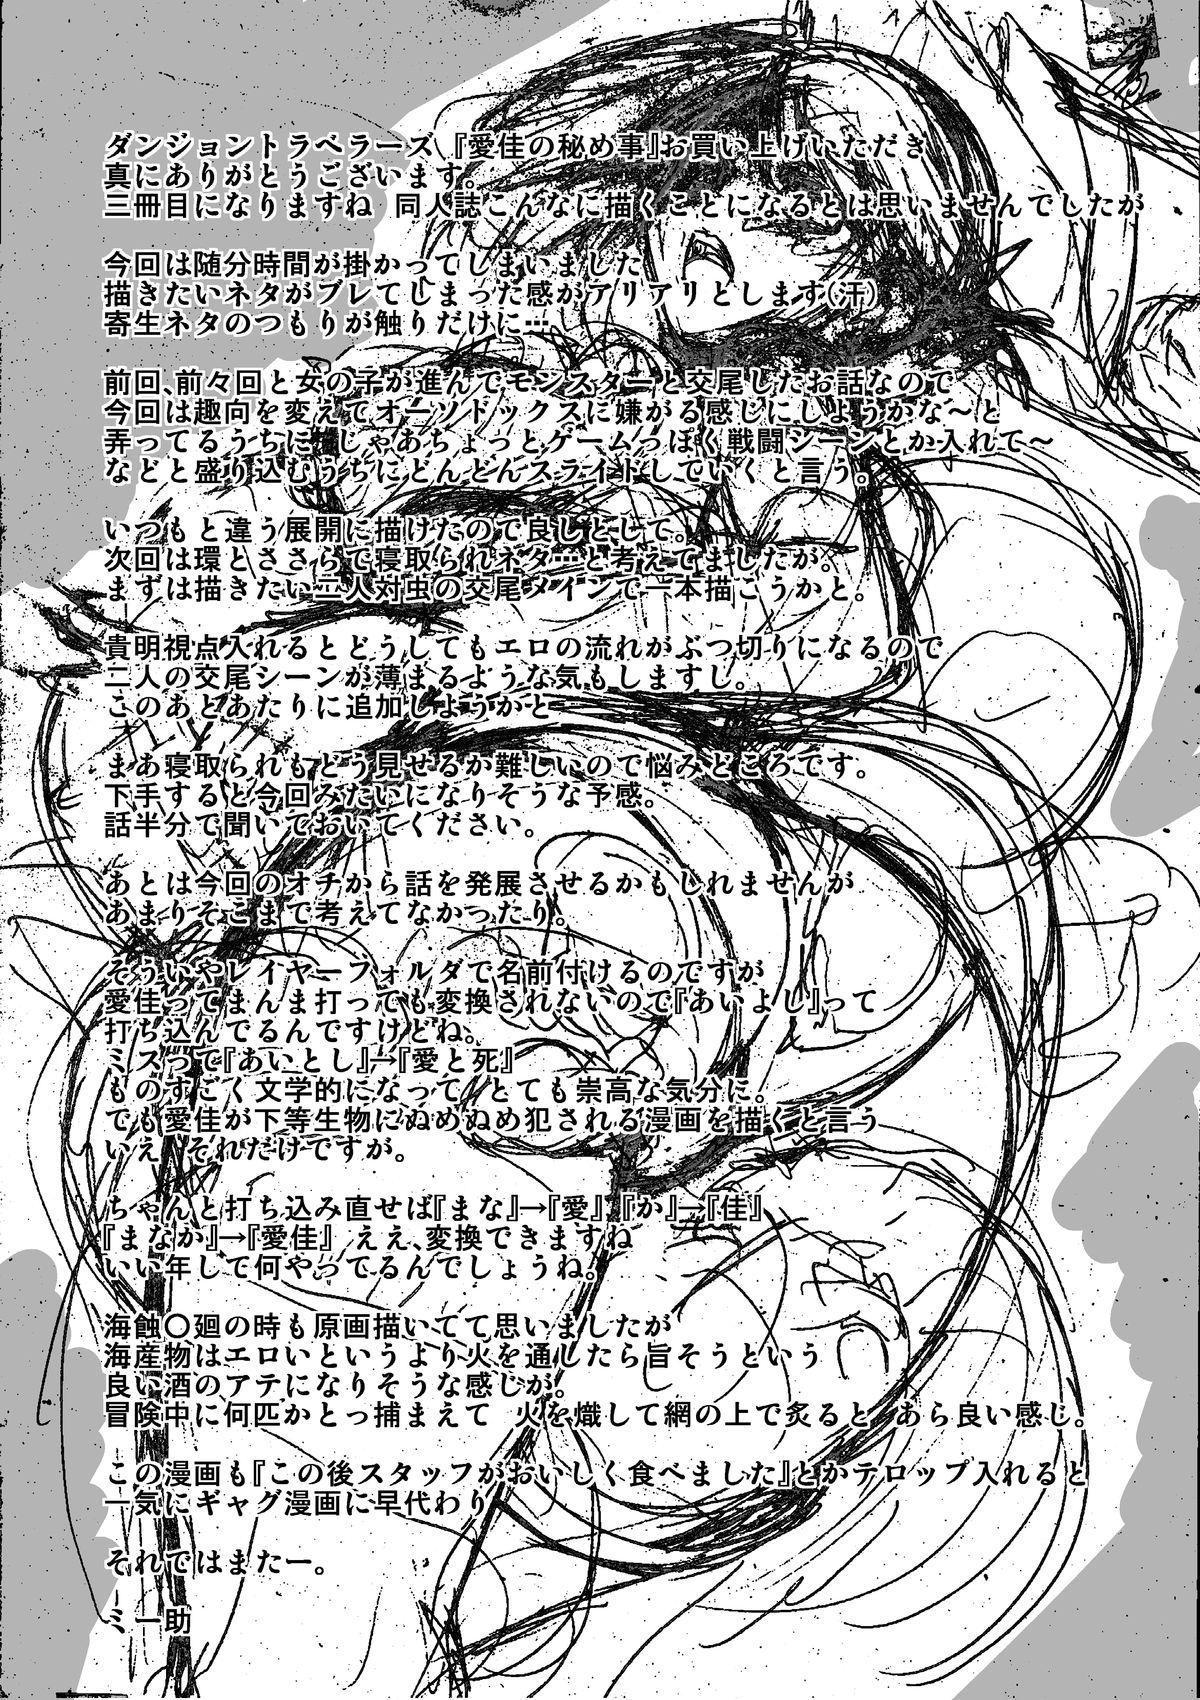 ダンジョントラベラーズ『愛佳の秘め事』お買い上げいただき
真にありがとうございます。
三冊目になりますね 同人誌こんなに描くことになるとは思いませんでしたが
今回は随分時間が掛かってしまいました
描きたいネタがブレてしまった感がアリアリとします(汗)
寄生ネタのつもりが触りだけに…
前回、前々回と女の子が進んでモンスターと交尾したお話なので
今回は趣向を変えてオーソドックスに嫌がる感じにしようかな～と
弄ってるうちに、じゃあちょっとゲームっぽく戦闘シーンとか入れて～
などと盛り込むうちにどんどんスライドしていくと言う。
いつもと違う展開に描けたので良しとして。
次回は環とささらで寝取られネタ…と考えてましたが。
まずは描きたい二人対虫の交尾メインで一本描こうかと。
貴明視点入れるとどうしてもエロの流れがぶつ切りになるので
二人の交尾シーンが薄まるような気もしますし。
このあとあたりに追加しようかと
まあ寝取られもどう見せるか難しいので悩みどころです。
下手すると今回みたいになりそうな予感。
話半分で聞いておいてください。
あとは今回のオチから話を発展させるかもしれませんが
あまりそこまで考えてなかったり。
そういやレイヤーフォルダで名前付けるのですが
愛佳ってまんま打っても変換されないので『あいよし』って
打ち込んでるんですけどね。
ミスって『あいとし』→『愛と死』
ものすごく文学的になって とても崇高な気分に。
でも愛佳が下等生物にぬめぬめ犯される漫画を描くと言う
いえ それだけですが。
ちゃんと打ち込み直せば『まな』→『愛』、『か』→『佳』
『まなか』→『愛佳』 ええ、変換できますね
いい年して何やってるんでしょうね。
海蝕〇廻の時も原画描いてて思いましたが
海産物はエロいというより火を通したら旨そうという
良い酒のアテになりそうな感じが。
冒険中に何匹かとっ捕まえて 火を熾して網の上で炙ると あら良い感じ。
この漫画も『この後スタッフがおいしく食べました』とかテロップ入れると
一気にギャグ漫画に早代わり
それではまたー。
ミー助